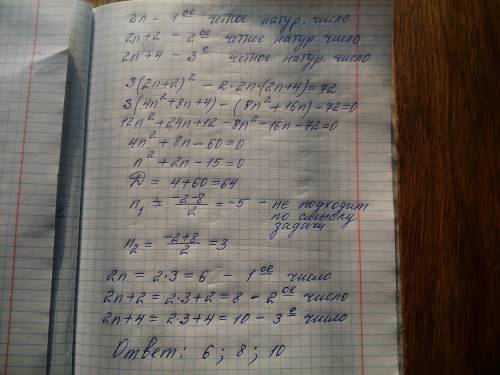 2n - 1ое четное натур. число
2n+2 - 2ое четное натур число
2n+4 - 3е четное натур. число
3(2n+2)² - 2·2n·(2n+4)=72
3(4n²+8n+4) - (8n²+16n)-72=0
12n²+24n+12-8n²-16n-72=0
4n²+8n-60=0
n²+2n-15=0
D = 4+60=64
n₁ = (-2-8)/2 = -5 - не подходит по смыслу задачи
n₂ = (-2+8)/2 = 3
2n = 2·3=6 - 1ое число
2n+2 = 2·3+2=8 - 2ое число
2n+4 = 2·3+4=10 - 3е число
Ответ: 6; 8; 10